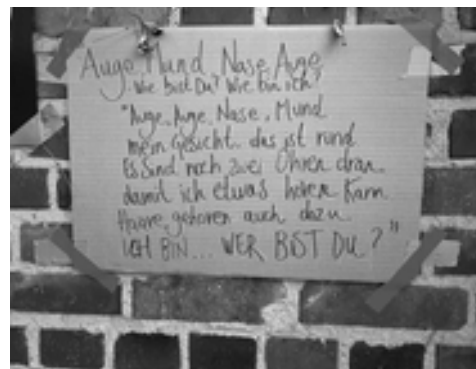 Auge, Mund, Nase, Auge
Wie bist Du? Wie bin ich?
"Auge, Auge, Nase, Mund
mein Gesicht das ist rund
Es sind noch zwei Ohren dran
damit ich etwas hören kann
Haare gehören auch dazu
ICH BIN... WER BIST DU?"